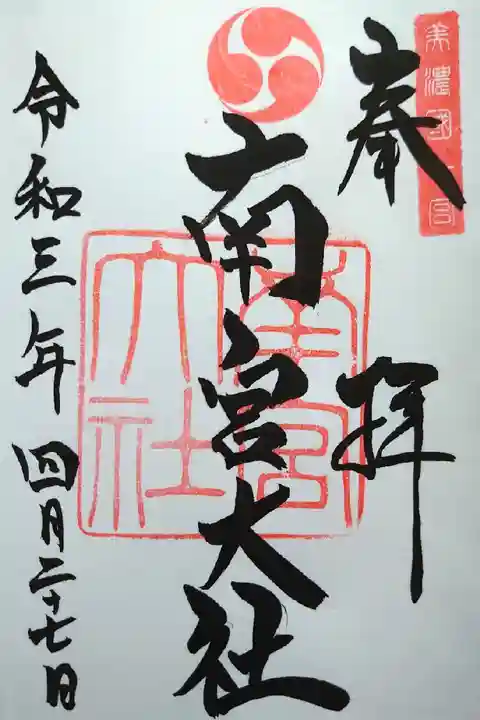 美濃國一宮
奉拝
南宮大社
南宮大社
令和三年四月二十七日